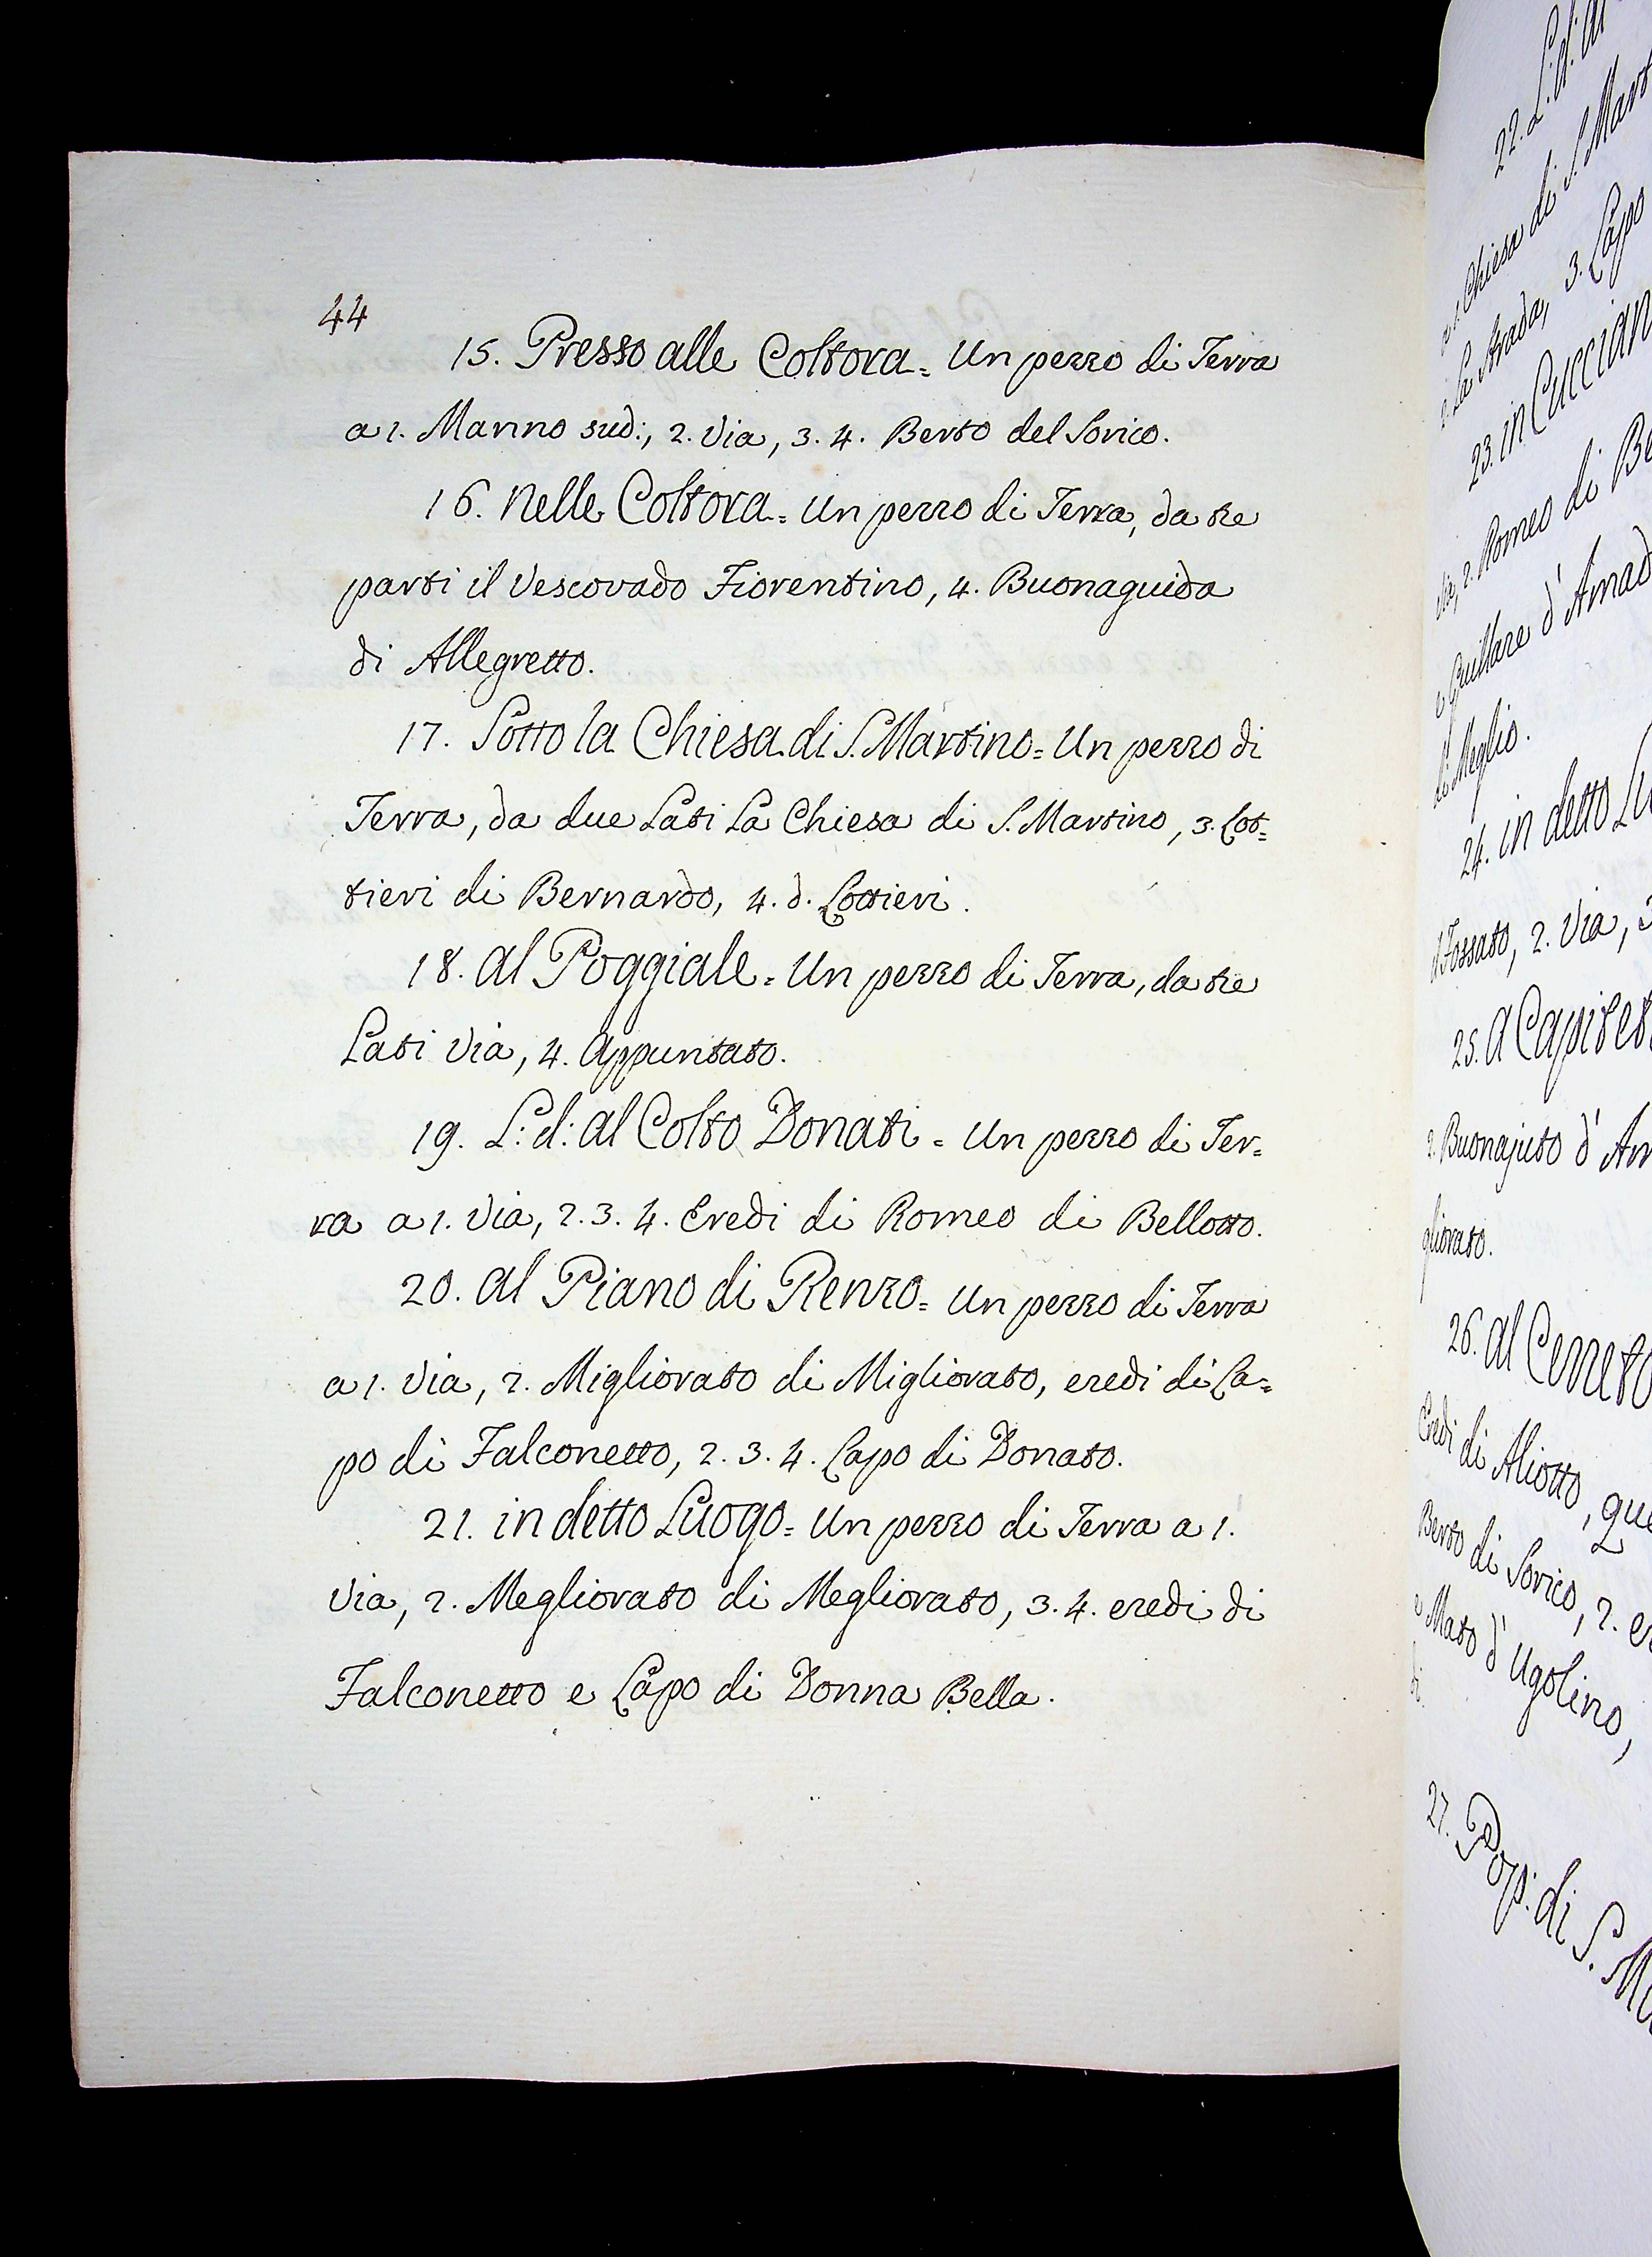 44
15. Presso alle Coltora = Un pezzo di Terra
a 1. Manno sud:, 2. Via, 3. 4. Berto del Sorico.
16. nelle Coltora = Un pezzo di Terra, da tre
parti il Vescovado Fiorentino, 4. Buonaguida
di Allegretto.
17. Sotto la Chiesa di S. Martino = Un pezzo di
Terra, da due Lati La Chiesa di S. Martino, 3. Lot=
tieri di Bernardo, 4. d. Lottieri.
18. al Poggiale = Un pezzo di Terra, da tre
Lati Via, 4. Appuntato.
19. L: d: al Colto Donati = Un pezzo di Ter=
ra a 1. Via, 2. 3. 4. Eredi di Romeo di Bellotto.
20. al Piano di Renzo = Un pezzo di Terra
a 1. Via, 2. Migliorato di Migliorato, eredi di La=
po di Falconetto, 2. 3. 4. Lapo di Donato.
21. in detto Luogo = Un pezzo di Terra a 1.
Via, 2. Megliorato di Megliorato, 3. 4. eredi di
Falconetto e Lapo di Donna Bella.
22. L: d: al
Chiesa di S. Mart
La Strada, 3. Lapo
23. in Cuccian
Via, 2. Romeo di Be
e Guillare d'Amad
di Meglio.
24. in detto Lu
Fossato, 2. Via, 3
25. A Capitet
2. Buonajuto d'Am
gliorato.
26. al Cerreto
Eredi di Aliotto, que
Berto di Sorico, 2. er
e Maso d'Ugolino,
di
27. Pop: di S. Ma